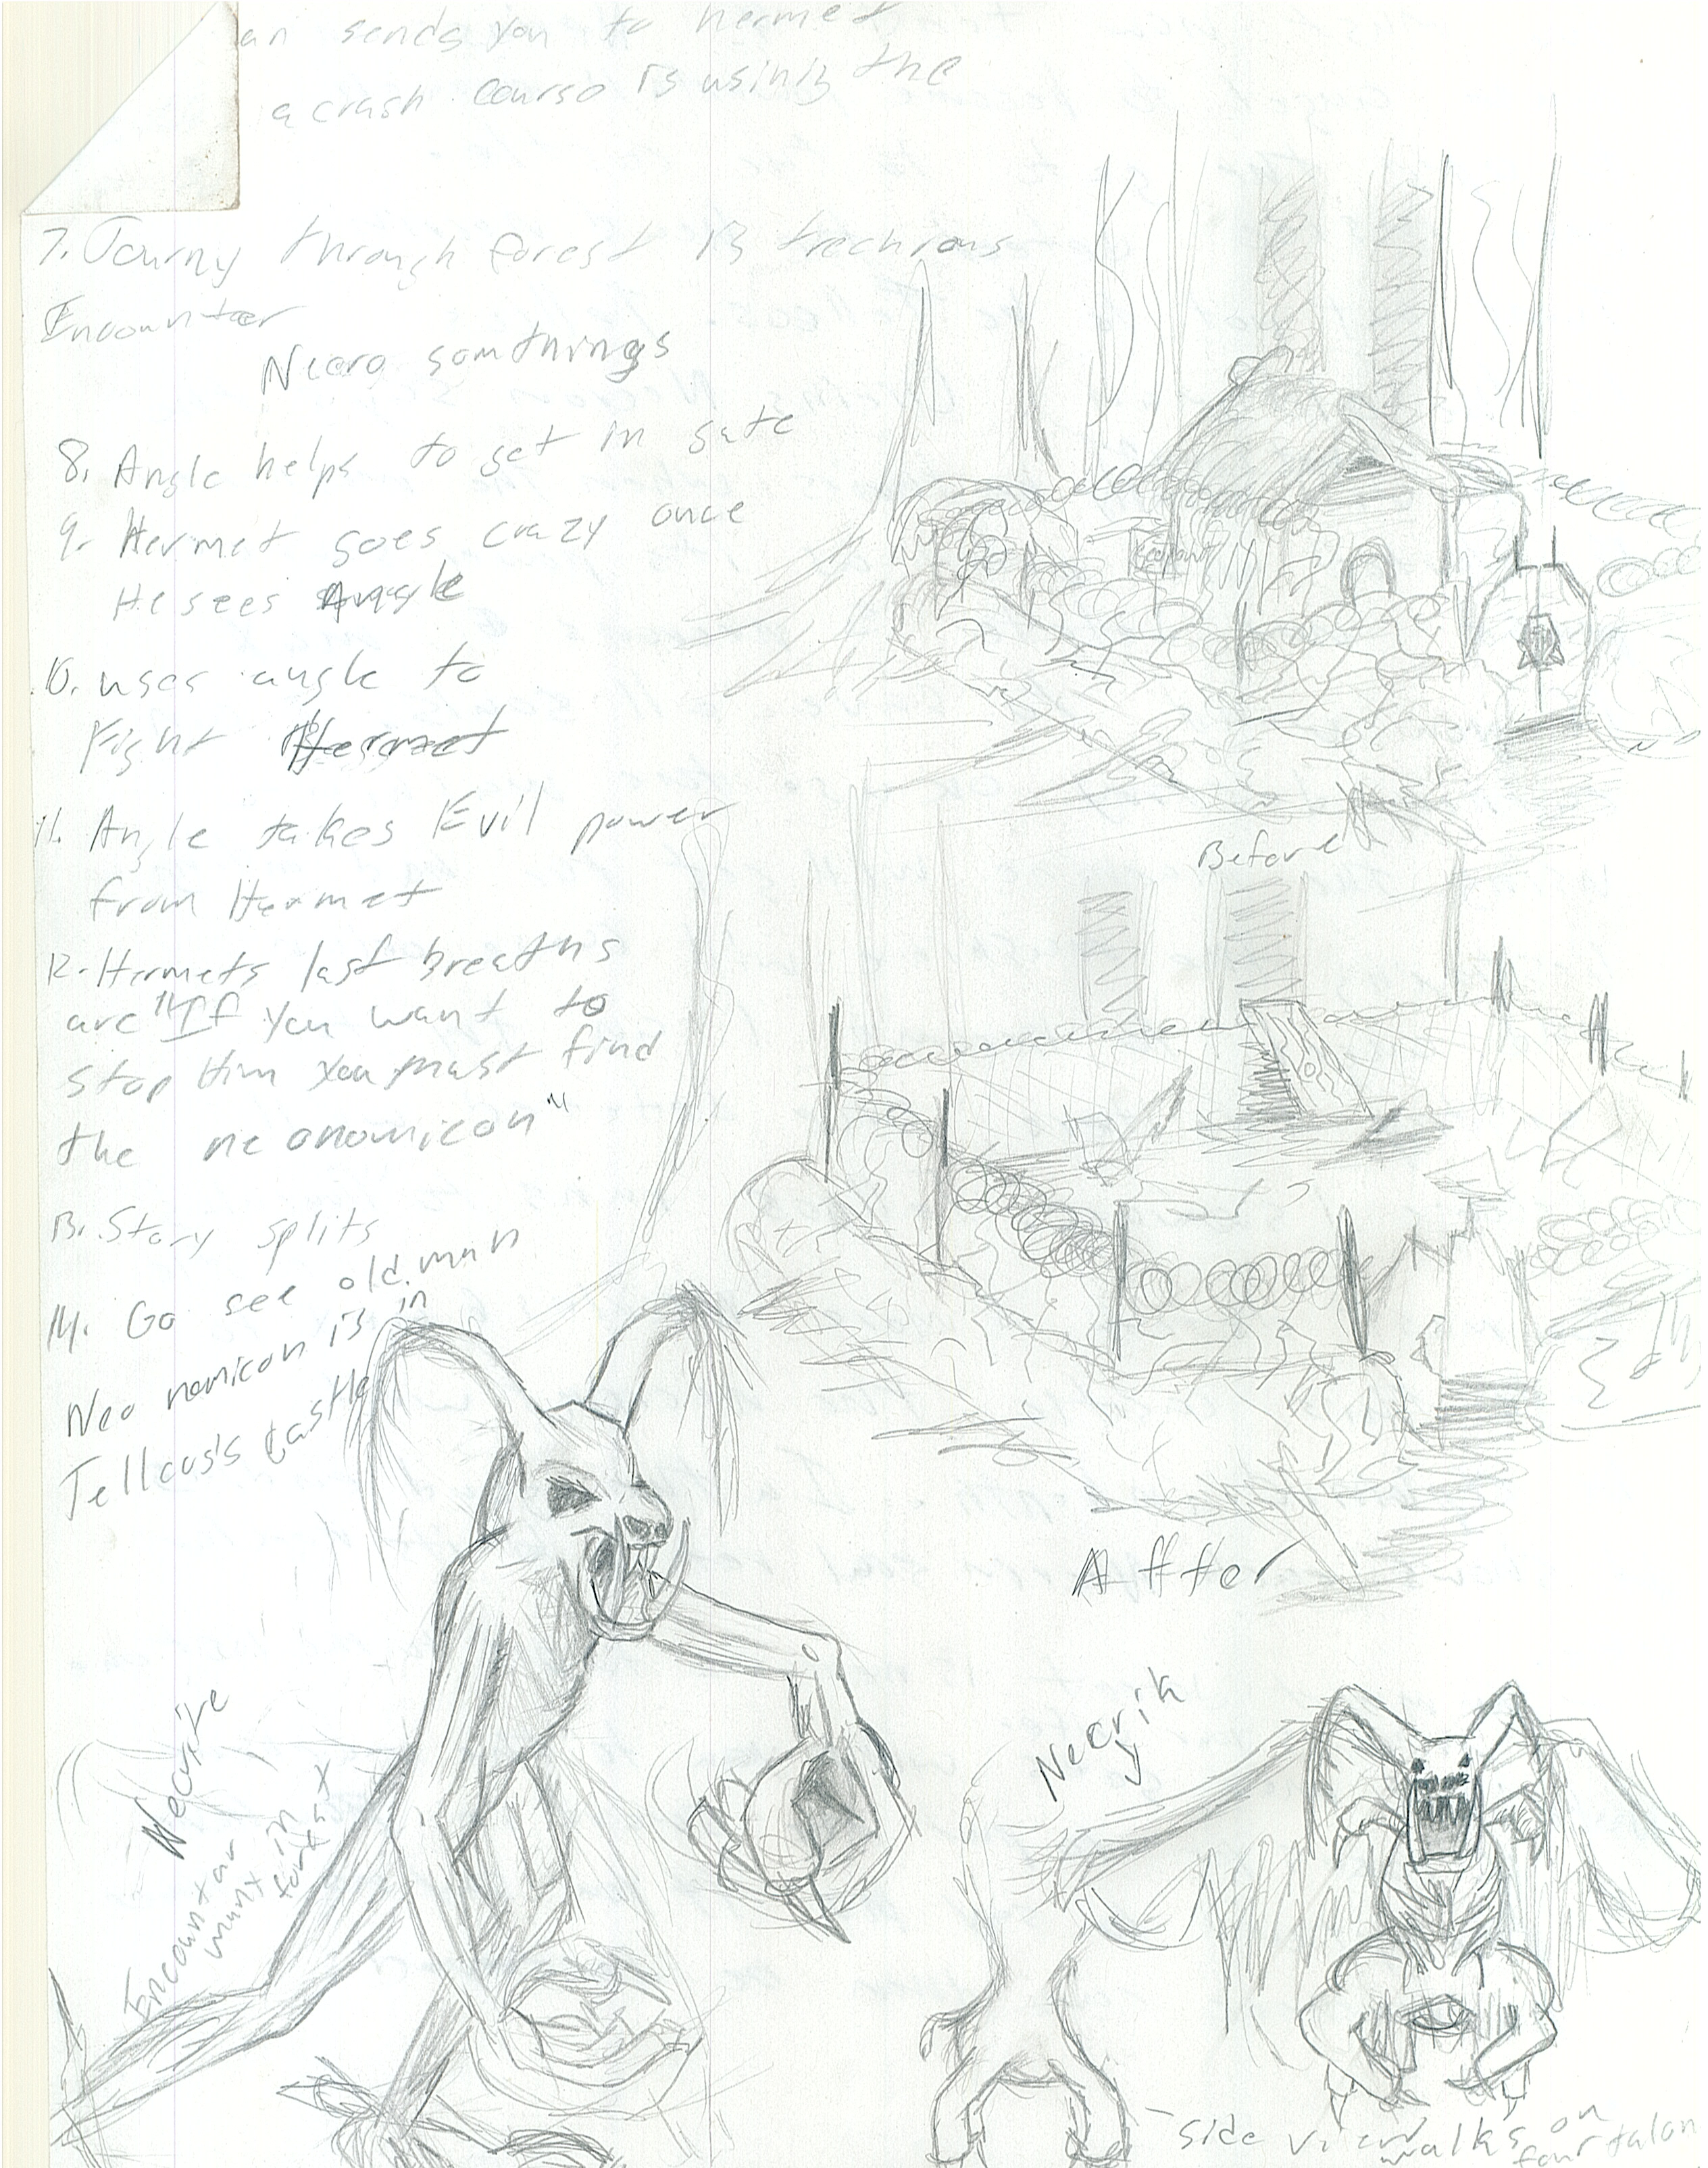 an sends you to hermet
a crash course is using the
7. Journy through forest is trechrous
Encounter
Necro somthings
8. Angle helps to get in gate
9. Hermet goes crazy once
He sees Angle
10. uses angle to
Fight Hermet
11. Angle takes Evil power
from Hermet
12. Hermets last breaths
are "If you want to
stop Him you must find
the neonomicon"
13. Story splits
14. Go see old man
Neo nomicon is in
Tellcus's Castle
Before
Affter
Necrite
Encountar
many in
forest
Necrik
y
side view
walks on
four talon